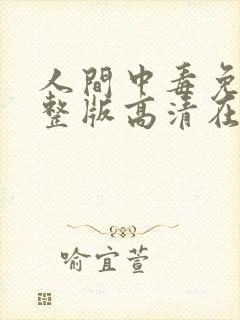 人間中毒免
整版高清在
喻宜萱